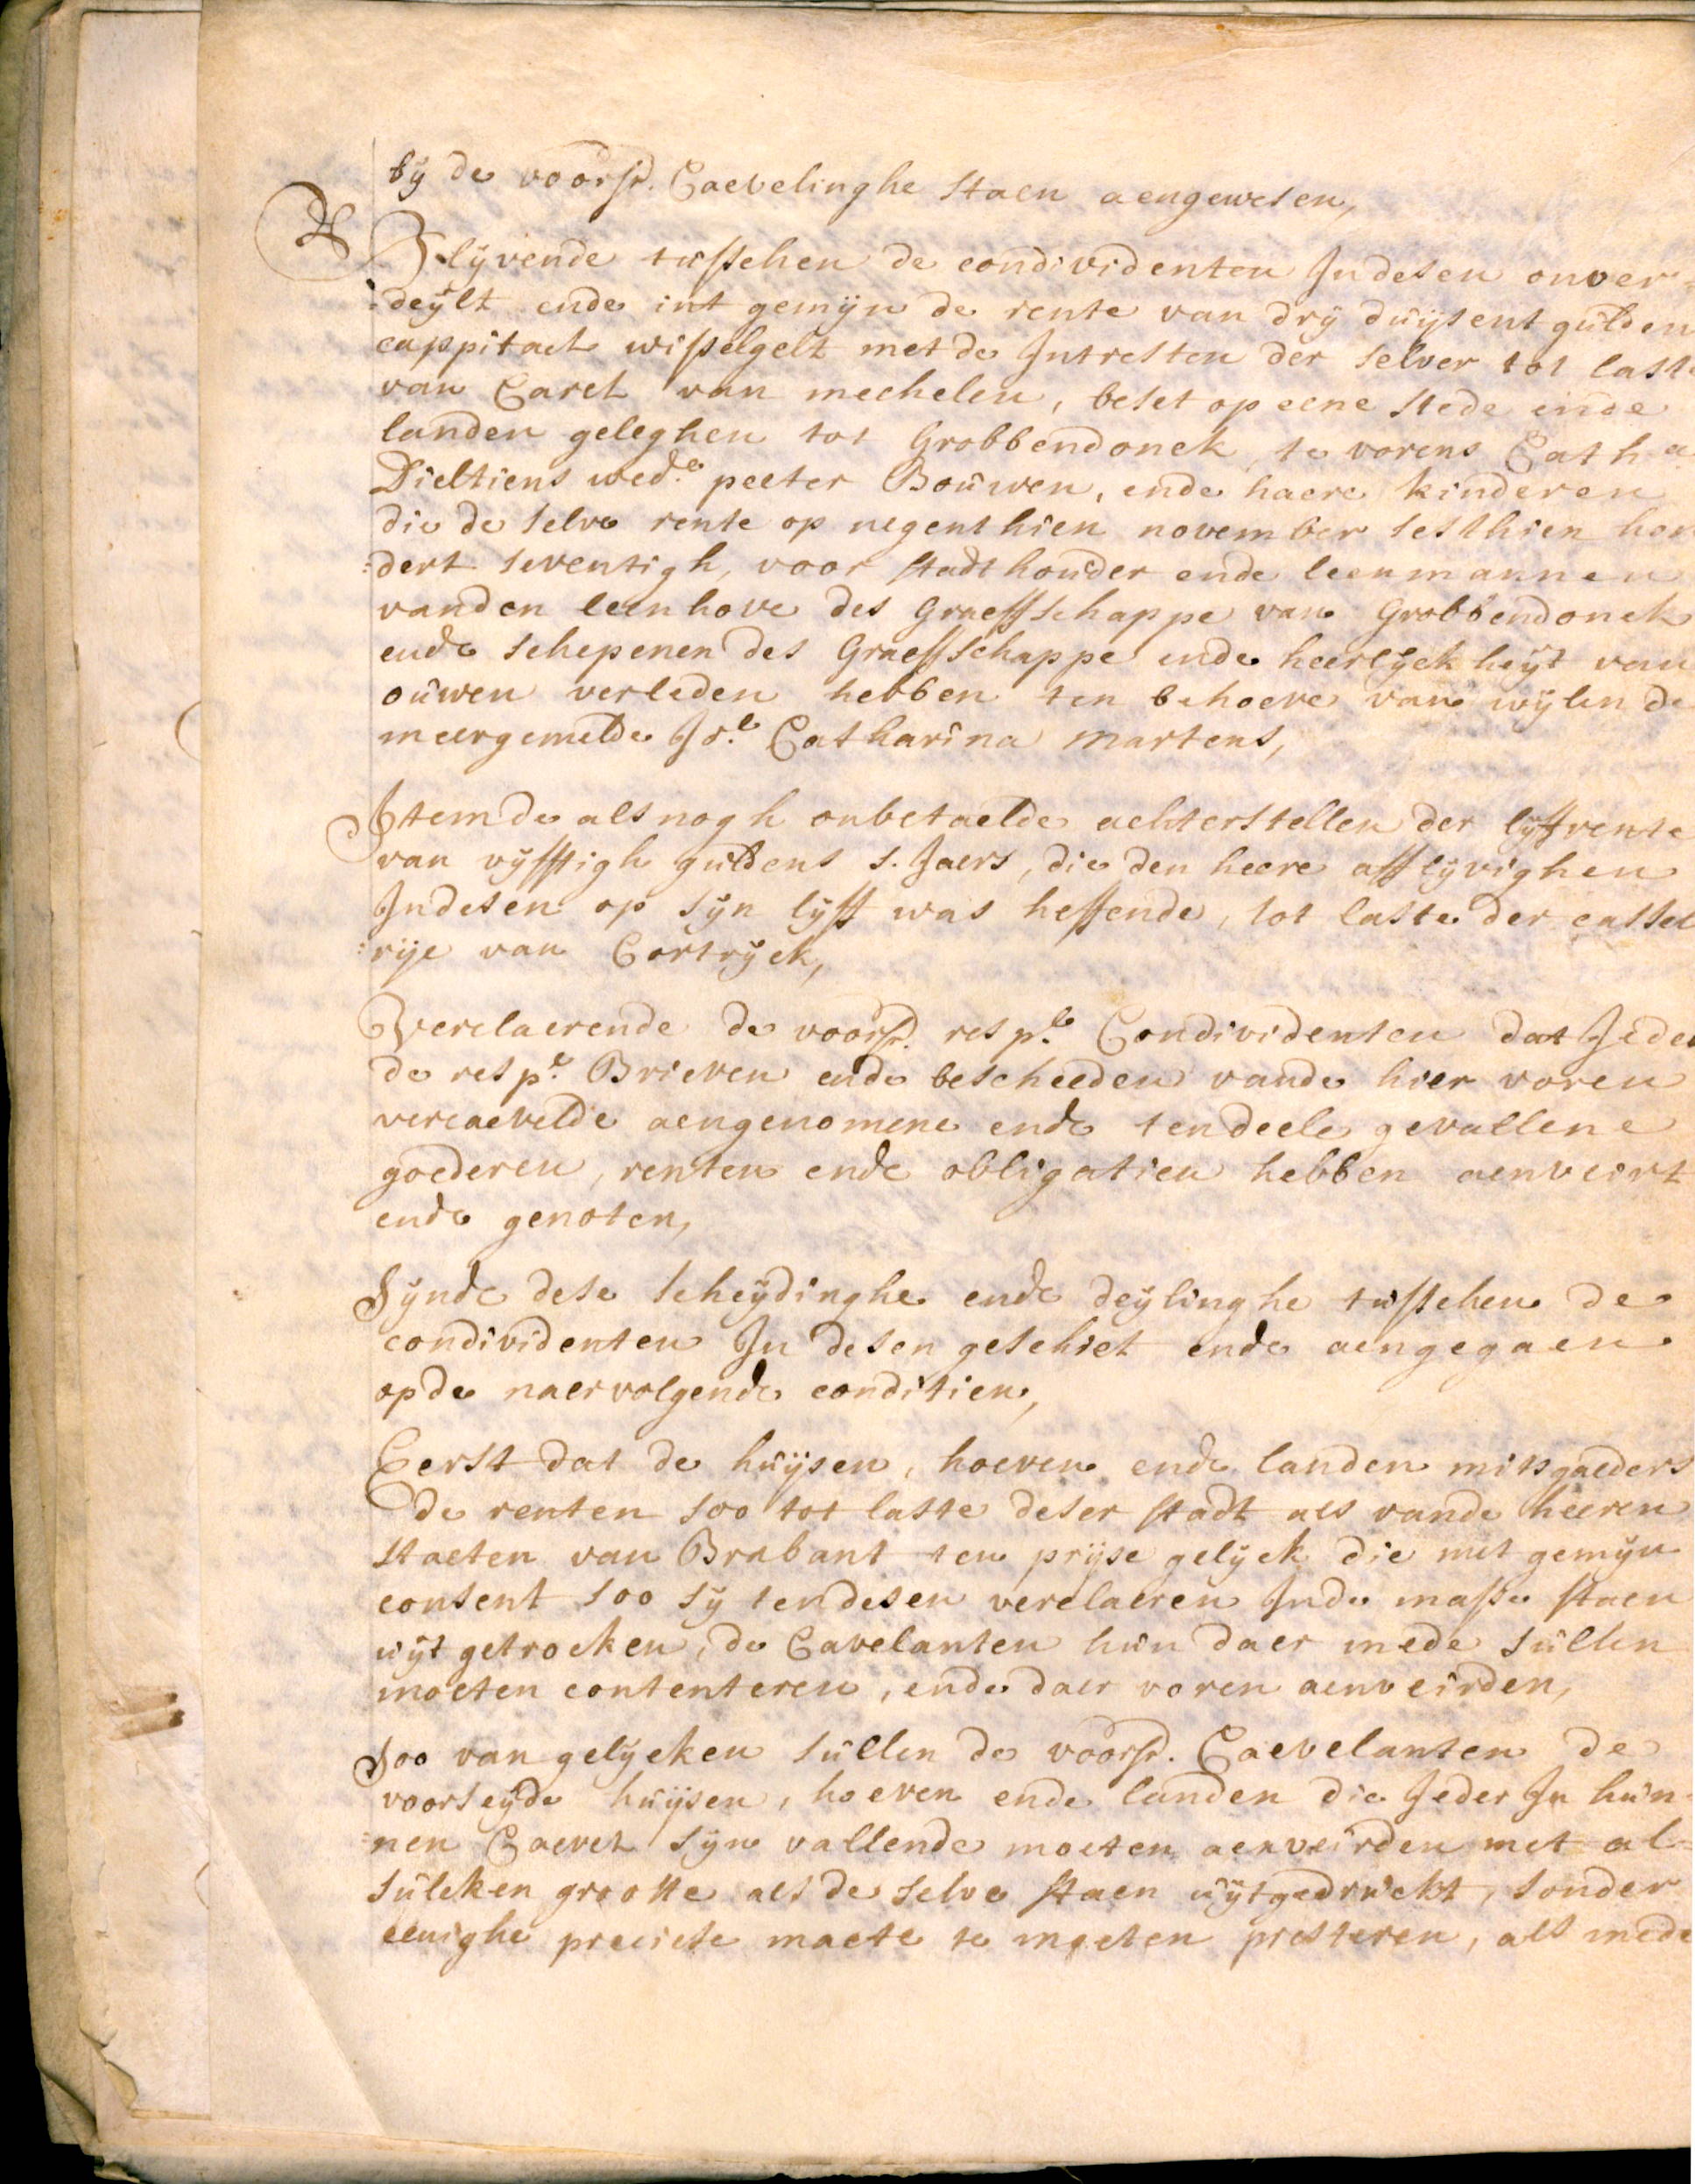 bij de voorsr. Caevelinghe staen aengewesen,
Blijvende tusschen de condividenten Indesen onver=
=deijlt ende int gemijn de rente van drij duijsent gulden
cappitael wisselgelt met de Intresten der selver tot laste
van Carel van mechelen, beset op eene stede ende
landen geleghen tot Grobbendonck, te vorens Catha
Dieltiens wede. peeter Bouwen, ende haere kinderen
die de selve rente op negenthien november sesthien hon
=dert seventigh, voor stadthouder ende leenmannen
vanden leenhove des Graeffschappe van Grobbendonck
ende schepenen des Graeffschappe ende heerlijckheijt van
ouwen verleden hebben ten behoeve van wijlen de
meergemelde Jo.e Catharina Martens,
Item de alsnogh onbetaelde achterstellen der lijffrente
van vijfftigh guldens s. Jaers, die den heere afflijvighen
Indesen op sijn lijff was heffende, tot laste der cassel
=rije van Cortrijck,
Verclaerende de voorsr. resp.e Condividenten dat Jeder
de resp.e Brieven ende bescheeden vande hier voren
vercaevelde aengenomene ende tendeele gevallene
goederen, renten ende obligatien hebben aenveirt
ende genoten,
Sijnde dese scheijdinghe ende deijlinghe tusschen de
condividenten In desen geschiet ende aengegaen
opde naervolgende conditien,
Eerst dat de huijsen, hoeven ende landen mitsgaeders
de renten soo tot laste deser stadt als vande heeren
Staeten van Brabant ten prijse gelijck die met gemijn
consent soo sij tendesen verclaeren Inde masse staen
uijtgetrocken, de Cavelanten hun daer mede sullen
moeten contenteren, ende daer voren aenveirden,
Soo van gelijcken sullen de voorsr. Caevelanten de
voorseijde huijsen, hoeven ende landen die Jeder In hun=
=nen Caevel sijn vallende moeten aenveirden met al=
sulcken grootte als de selve staen uijtgedruckt, sonder
eenighe preciese maete te moeten presteren, als mede